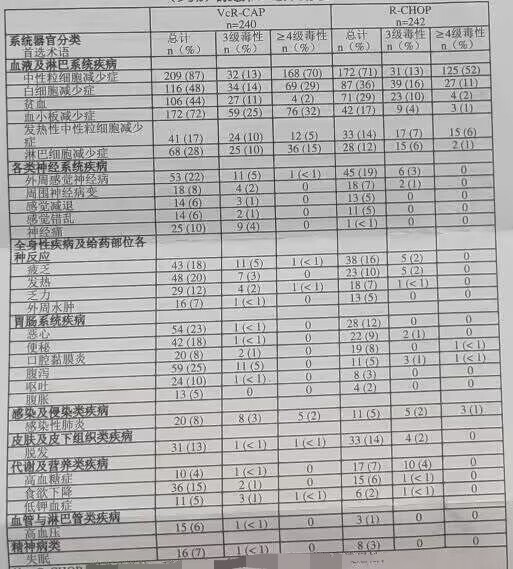 VcR-CAP R-CHOP
n=240 n=242
系统器官分类 总计 3级毒性 ≥4级毒性 总计 3级毒性 ≥4级毒性
首选术语 n（%） n（%） n（%） n（%） n（%） n（%）
血液及淋巴系统疾病
中性粒细胞减少症 209 (87) 32 (13) 168 (70) 172 (71) 31 (13) 125 (52)
白细胞减少症 116 (48) 34 (14) 69 (29) 87 (36) 39 (16) 27 (11)
贫血 106 (44) 27 (11) 4 (2) 71 (29) 23 (10) 4 (2)
血小板减少症 172 (72) 59 (25) 76 (32) 42 (17) 9 (4) 3 (1)
发热性中性粒细胞减少
症 41 (17) 24 (10) 12 (5) 33 (14) 17 (7) 15 (6)
淋巴细胞减少症 68 (28) 25 (10) 36 (15) 28 (12) 15 (6) 2 (1)
各类神经系统疾病
外周感觉神经病 53 (22) 11 (5) 1 (< 1) 45 (19) 6 (3) 0
周围神经病变 18 (8) 4 (2) 0 18 (7) 2 (1) 0
感觉减退 14 (6) 3 (1) 0 13 (5) 0 0
感觉错乱 14 (6) 2 (1) 0 11 (5) 0 0
神经痛 25 (10) 9 (4) 0 1 (< 1) 0 0
全身性疾病及给药部位各
种反应
疲乏 43 (18) 11 (5) 1 (< 1) 38 (16) 5 (2) 0
发热 48 (20) 7 (3) 0 23 (10) 5 (2) 0
乏力 29 (12) 4 (2) 1 (< 1) 18 (7) 1 (< 1) 0
外周水肿 16 (7) 1 (< 1) 0 13 (5) 0 0
胃肠系统疾病
恶心 54 (23) 1 (< 1) 0 28 (12) 0 0
便秘 42 (18) 1 (< 1) 0 22 (9) 2 (1) 0
口腔黏膜炎 20 (8) 2 (1) 0 19 (8) 0 1 (< 1)
腹泻 59 (25) 11 (5) 0 11 (5) 3 (1) 1 (< 1)
呕吐 24 (10) 1 (< 1) 0 8 (3) 0 0
腹胀 13 (5) 0 0 4 (2) 0 0
感染及侵染类疾病
感染性肺炎 20 (8) 8 (3) 5 (2) 11 (5) 5 (2) 3 (1)
皮肤及皮下组织类疾病
脱发 31 (13) 1 (< 1) 1 (< 1) 33 (14) 4 (2) 0
代谢及营养类疾病
高血糖症 10 (4) 1 (< 1) 0 17 (7) 10 (4) 0
食欲下降 36 (15) 2 (1) 0 15 (6) 1 (< 1) 0
低钾血症 11 (5) 3 (1) 1 (< 1) 6 (2) 1 (< 1) 0
血管与淋巴管类疾病
高血压 15 (6) 1 (< 1) 0 3 (1) 0 0
精神病类
失眠 16 (7) 1 (< 1) 0 8 (3) 0 0